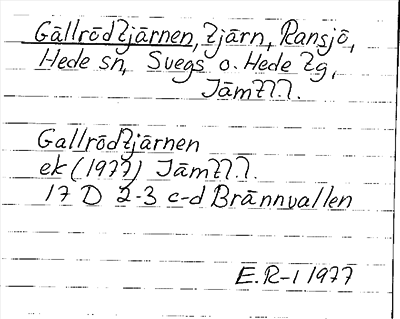 Gällrödtjärnen, tjärn, Ransjö,
Hede sn, Svegs o. Hede tg,
Jämtl.l.
Gallrödtjärnen
ek (1977) Jämtl.l.
17 D 2-3 c-d Brännvallen
E.R-i 1977